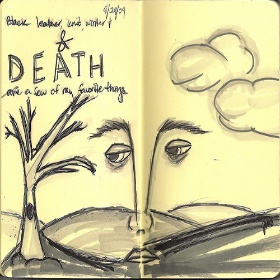 9/29/09
Black leather, knives, winter,
&
DEATH
are a few of my favorite things